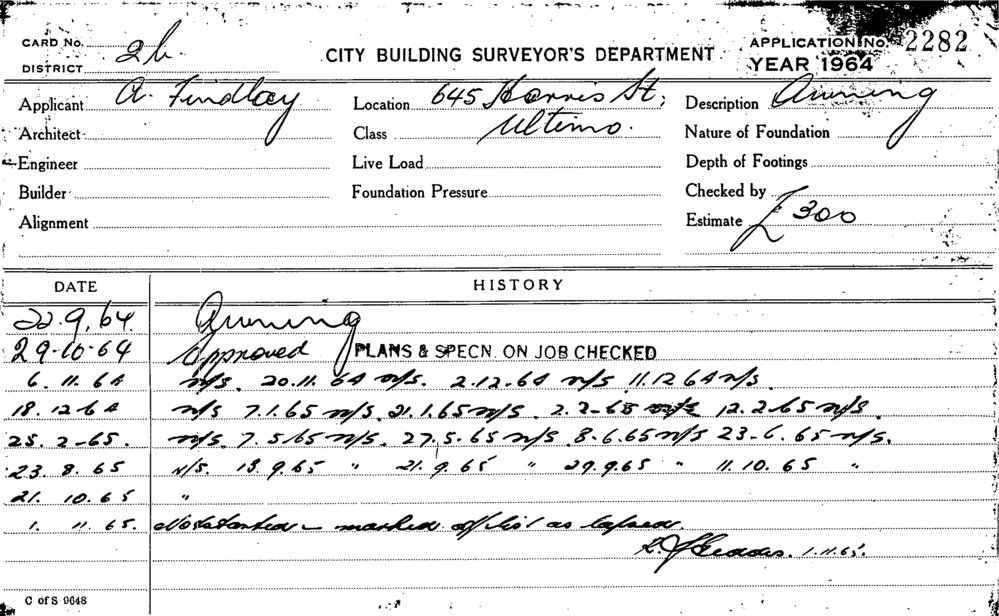 CARD No. 2b
DISTRICT
CITY BUILDING SURVEYOR'S DEPARTMENT
APPLICATION No. 2282
YEAR 1964
Applicant A. Findlay Location 645 Harris St, Description Awning
Architect Class Ultimo. Nature of Foundation
Engineer Live Load Depth of Footings
Builder Foundation Pressure Checked by
Alignment Estimate £300
DATE HISTORY
22.9.64 Awning
29-10-64 Approved PLANS & SPECN. ON JOB CHECKED
6.11.64 n/s. 20.11.64 n/s. 2.12.64 n/s 11.12 64 n/s.
18.12 64 n/s 7.1.65 n/s. 21.1.65 n/s. 2.2-65 n/s 12.2.65 n/s.
25.2-65. n/s. 7.5/65 n/s. 27.5.65 n/s. 8.6.65 n/s 23-6.65 n/s.
23.8.65 n/s. 13.9.65 " 21.9.65 " 29.9.65 " 11.10.65 "
21.10.65 "
1.11.65. Not started - marked off list as lapsed.
1.11.65.
C of S 9648